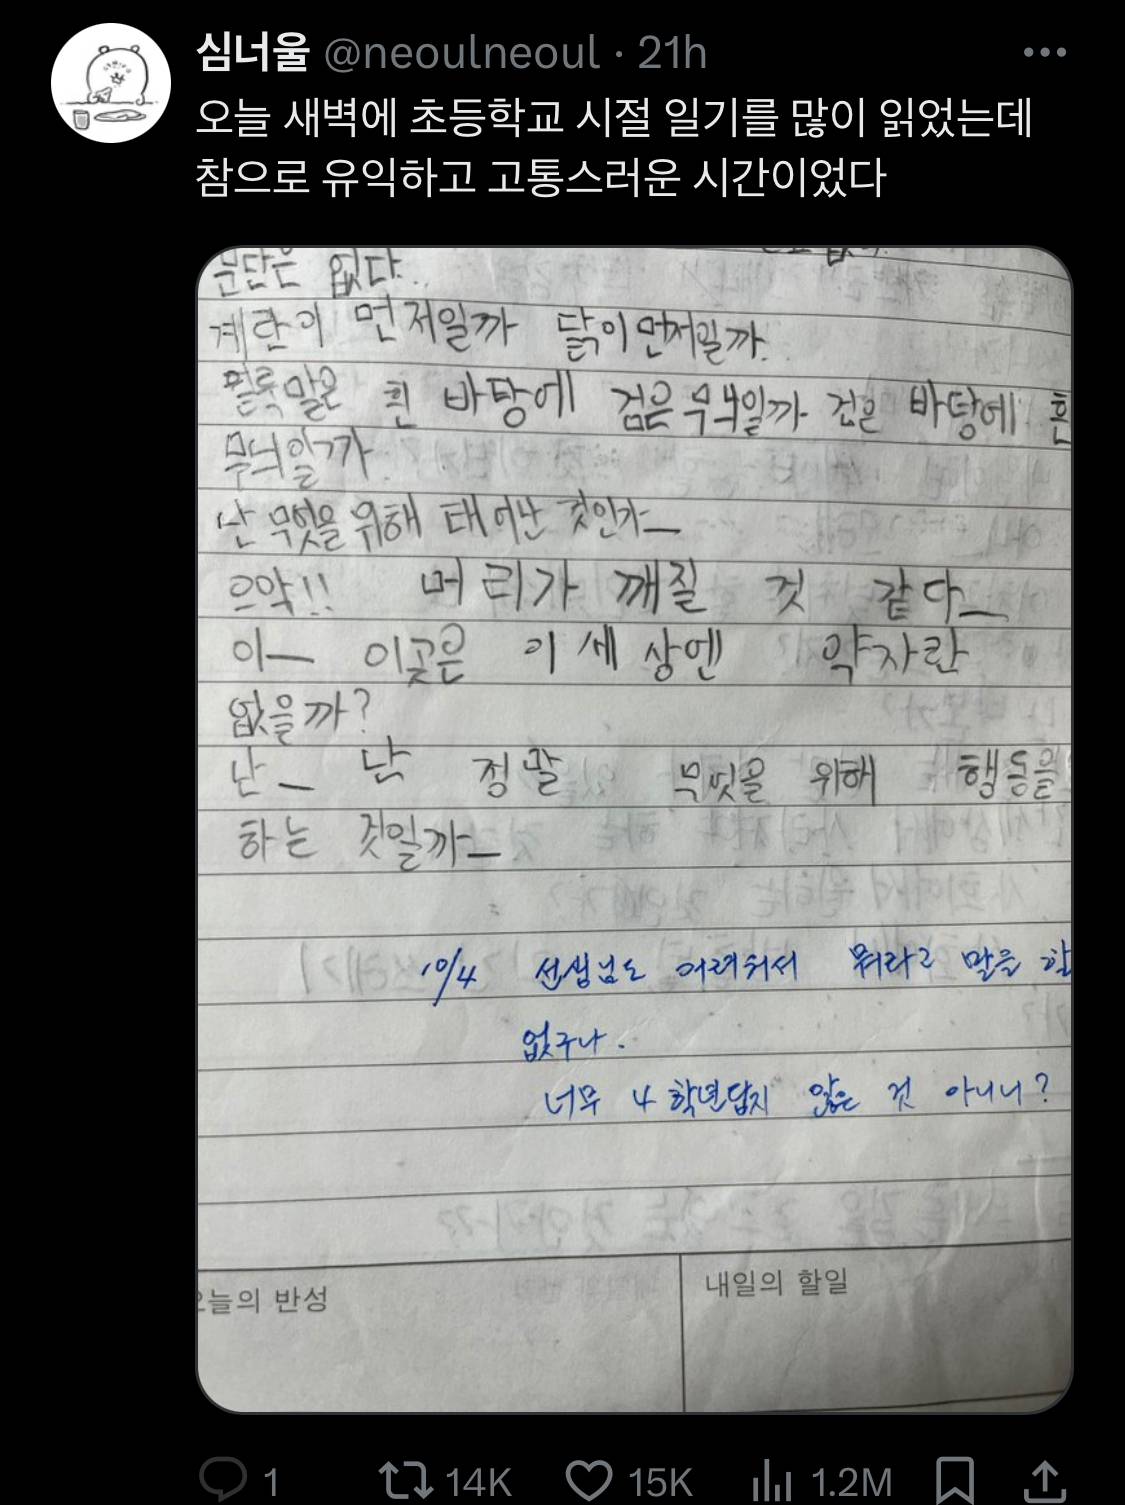 심너울 @neoulneoul · 21h
오늘 새벽에 초등학교 시절 일기를 많이 읽었는데
참으로 유익하고 고통스러운 시간이었다
없다..
계란이 먼저일까 닭이 먼저일까.
얼룩말은 흰 바탕에 검은 무늬일까 검은 바탕에 흰
무늬일까
난 무엇을 위해 태어난 것인가—
으악!! 머리가 깨질 것 같다—
이— 이곳은 이 세상엔 약자란
없을까?
난— 난 정말 무엇을 위해 행동을
하는 것일까—
10/4 선생님도 어려워서 뭐라고 말을 할
없구나.
너무 4학년답지 않은 것 아니니?
오늘의 반성
내일의 할일
1 14K 15K 1.2M